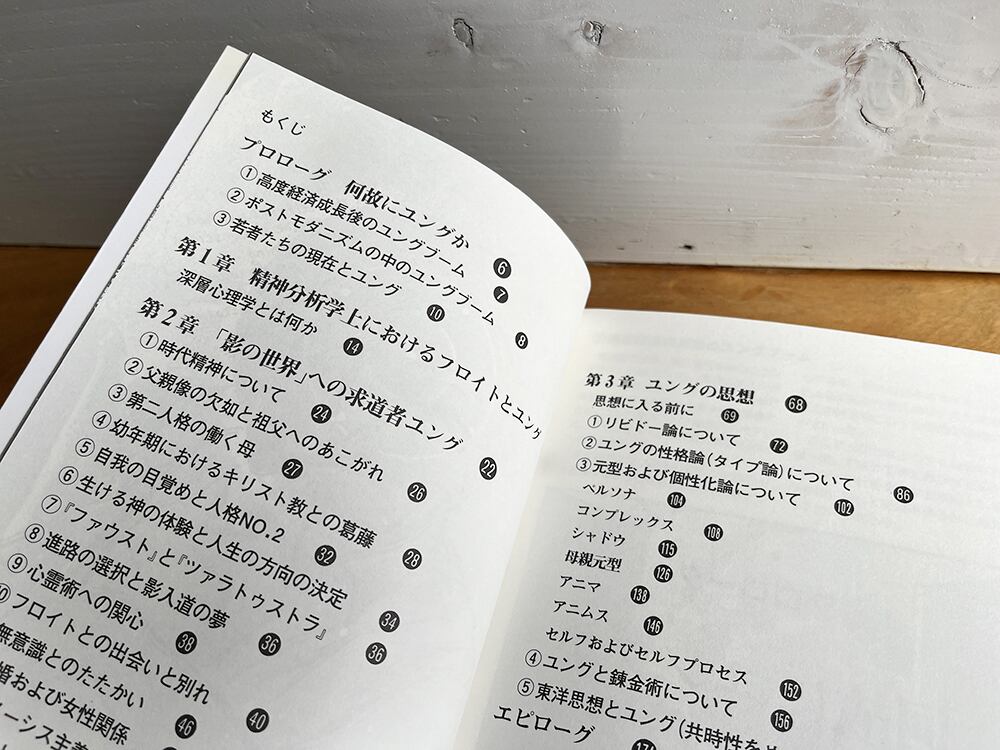 もくじ
プロローグ 何故にユングか 6
①高度経済成長後のユングブーム 7
②ポストモダニズムの中のユングブーム 8
③若者たちの現在とユング 10
第1章 精神分析学上におけるフロイトとユング
深層心理学とは何か 14
第2章 「影の世界」への求道者ユング 22
①時代精神について 24
②父親像の欠如と祖父へのあこがれ 26
③第二人格の働く母 27
④幼年期におけるキリスト教との葛藤 28
⑤自我の目覚めと人格NO.2 32
⑥生ける神の体験と人生の方向の決定 34
⑦『ファウスト』と『ツァラトゥストラ』 36
⑧進路の選択と影入道の夢 36
⑨心霊術への関心 38
⑩フロイトとの出会いと別れ 40
無意識とのたたかい 46
婚および女性関係
ーシス主義
第3章 ユングの思想 68
思想に入る前に 69
①リビドー論について 72
②ユングの性格論(タイプ論)について 86
③元型および個性化論について 102
ペルソナ 104
コンプレックス 108
シャドウ 115
母親元型 126
アニマ 138
アニムス 146
セルフおよびセルフプロセス 152
④ユングと錬金術について 156
⑤東洋思想とユング(共時性を
エピローグ